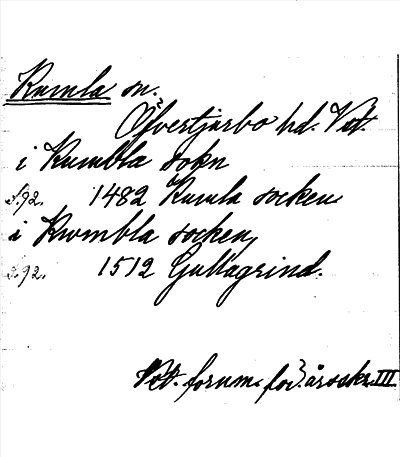 Kumla sn.
Öfvertjurbo hd. Vstl.
i Kumbla sokn
S.92. 1482 Kumla socken
i Kwmbla socken,
S.92. 1512 Gullagrind.
Vstl. fornm. för. årsskr. III